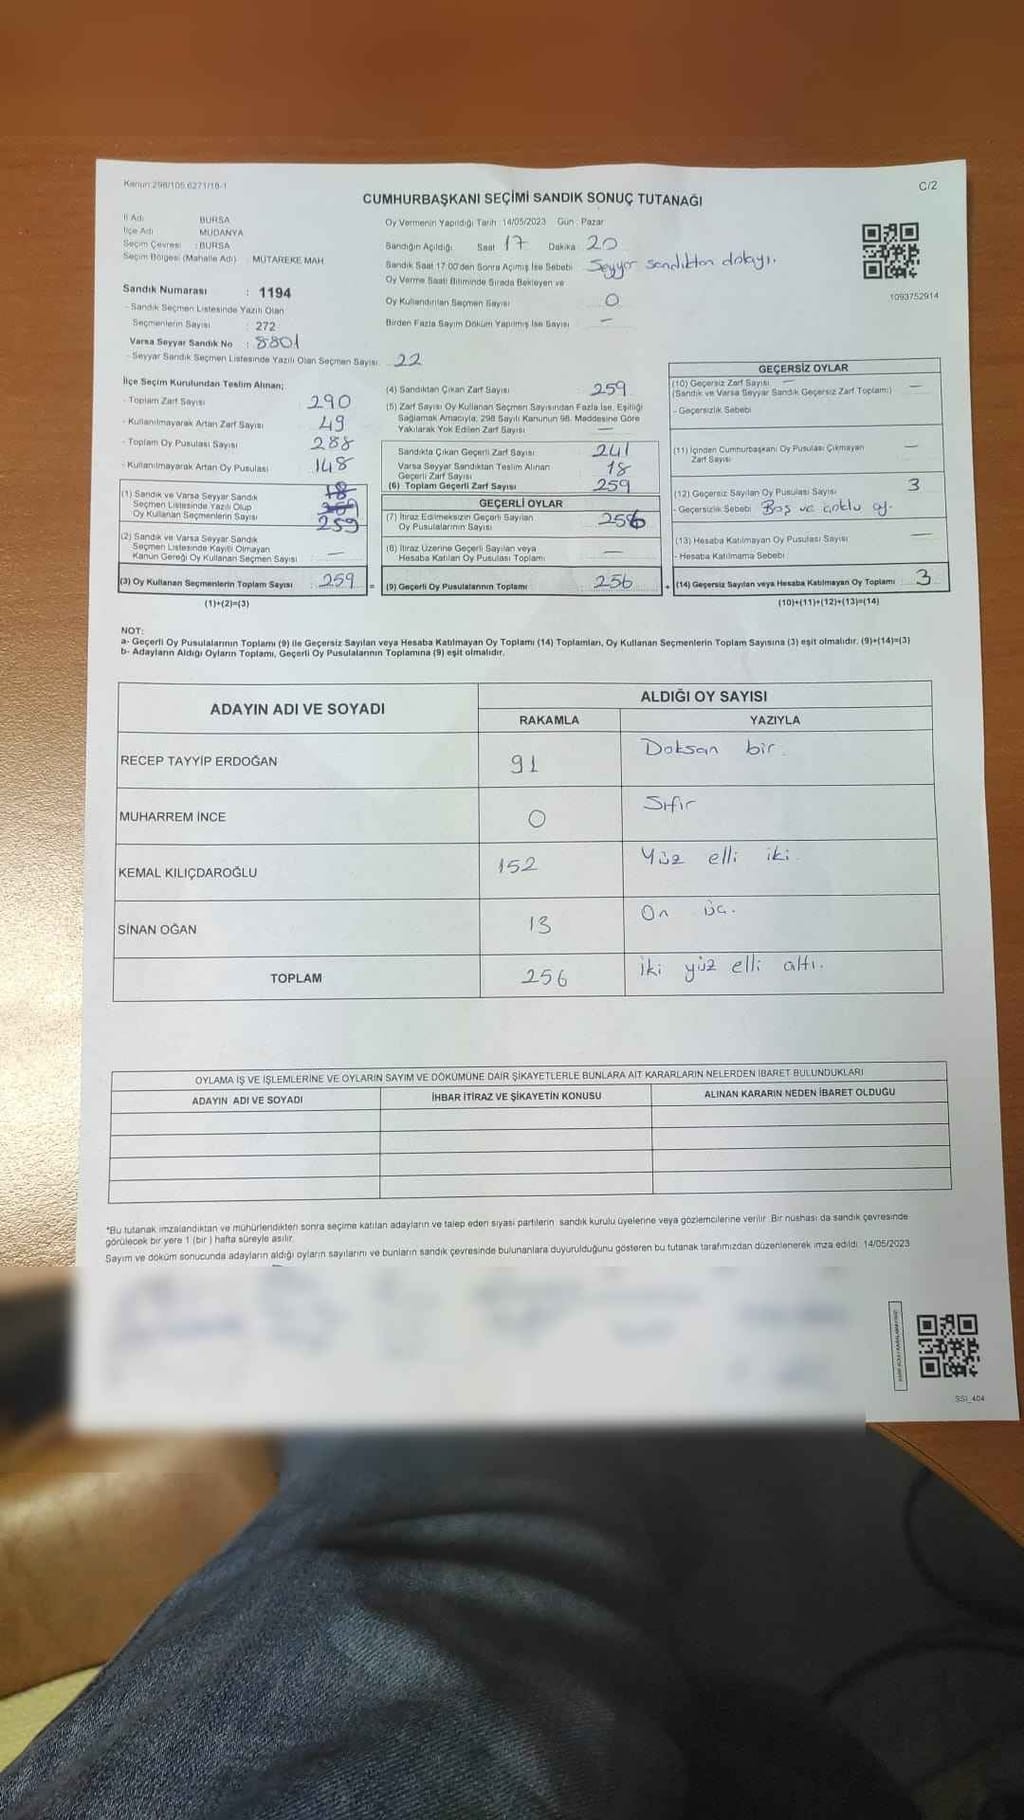 Kanun:298/105,6271/18-1
C/2
CUMHURBAŞKANI SEÇİMİ SANDIK SONUÇ TUTANAĞI
İl Adı : BURSA
İlçe Adı : MUDANYA
Seçim Çevresi : BURSA
Seçim Bölgesi (Mahalle Adı) : MÜTAREKE MAH
Sandık Numarası : 1194
- Sandık Seçmen Listesinde Yazılı Olan
Seçmenlerin Sayısı : 272
Varsa Seyyar Sandık No : 8801
- Seyyar Sandık Seçmen Listesinde Yazılı Olan Seçmen Sayısı: 22
Oy Vermenin Yapıldığı Tarih : 14/05/2023 Gün : Pazar
Sandığın Açıldığı: Saat 17 Dakika 20
Sandık Saat 17.00'den Sonra Açılmış İse Sebebi Seyyar sandıktan dolayı.
Oy Verme Saati Bitiminde Sırada Bekleyen ve
Oy Kullandırılan Seçmen Sayısı 0
Birden Fazla Sayım Döküm Yapılmış İse Sayısı —
1093752914
İlçe Seçim Kurulundan Teslim Alınan;
- Toplam Zarf Sayısı 290
- Kullanılmayarak Artan Zarf Sayısı 49
- Toplam Oy Pusulası Sayısı 288
- Kullanılmayarak Artan Oy Pusulası 148
(1) Sandık ve Varsa Seyyar Sandık
Seçmen Listesinde Yazılı Olup
Oy Kullanan Seçmenlerin Sayısı 259
(2) Sandık ve Varsa Seyyar Sandık
Seçmen Listesinde Kayıtlı Olmayan
Kanun Gereği Oy Kullanan Seçmen Sayısı —
(3) Oy Kullanan Seçmenlerin Toplam Sayısı 259 =
(1)+(2)=(3)
(4) Sandıktan Çıkan Zarf Sayısı 259
(5) Zarf Sayısı Oy Kullanan Seçmen Sayısından Fazla İse, Eşitliği
Sağlamak Amacıyla; 298 Sayılı Kanunun 98. Maddesine Göre
Yakılarak Yok Edilen Zarf Sayısı —
Sandıkta Çıkan Geçerli Zarf Sayısı 241
Varsa Seyyar Sandıktan Teslim Alınan
Geçerli Zarf Sayısı 18
(6) Toplam Geçerli Zarf Sayısı 259
GEÇERLİ OYLAR
(7) İtiraz Edilmeksizin Geçerli Sayılan
Oy Pusulalarının Sayısı 256
(8) İtiraz Üzerine Geçerli Sayılan veya
Hesaba Katılan Oy Pusulası Toplamı —
(9) Geçerli Oy Pusulalarının Toplamı 256 +
GEÇERSİZ OYLAR
(10) Geçersiz Zarf Sayısı —
(Sandık ve Varsa Seyyar Sandık Geçersiz Zarf Toplamı) —
- Geçersizlik Sebebi
(11) İçinden Cumhurbaşkanı Oy Pusulası Çıkmayan
Zarf Sayısı —
(12) Geçersiz Sayılan Oy Pusulası Sayısı 3
- Geçersizlik Sebebi Boş ve çoklu oy.
(13) Hesaba Katılmayan Oy Pusulası Sayısı —
- Hesaba Katılmama Sebebi
(14) Geçersiz Sayılan veya Hesaba Katılmayan Oy Toplamı 3
(10)+(11)+(12)+(13)=(14)
NOT:
a- Geçerli Oy Pusulalarının Toplamı (9) ile Geçersiz Sayılan veya Hesaba Katılmayan Oy Toplamı (14) Toplamları, Oy Kullanan Seçmenlerin Toplam Sayısına (3) eşit olmalıdır. (9)+(14)=(3)
b- Adayların Aldığı Oyların Toplamı, Geçerli Oy Pusulalarının Toplamına (9) eşit olmalıdır.
ADAYIN ADI VE SOYADI
ALDIĞI OY SAYISI
RAKAMLA YAZIYLA
RECEP TAYYİP ERDOĞAN 91 Doksan bir.
MUHARREM İNCE 0 Sıfır
KEMAL KILIÇDAROĞLU 152 Yüz elli iki.
SİNAN OĞAN 13 On üç.
TOPLAM 256 iki yüz elli altı.
OYLAMA İŞ VE İŞLEMLERİNE VE OYLARIN SAYIM VE DÖKÜMÜNE DAİR ŞİKAYETLERLE BUNLARA AİT KARARLARIN NELERDEN İBARET BULUNDUKLARI
ADAYIN ADI VE SOYADI İHBAR İTİRAZ VE ŞİKAYETİN KONUSU ALINAN KARARIN NEDEN İBARET OLDUĞU
*Bu tutanak imzalandıktan ve mühürlendikten sonra seçime katılan adayların ve talep eden siyasi partilerin sandık kurulu üyelerine veya gözlemcilerine verilir. Bir nüshası da sandık çevresinde
görülecek bir yere 1 (bir) hafta süreyle asılır.
Sayım ve döküm sonucunda adayların aldığı oyların sayılarını ve bunların sandık çevresinde bulunanlara duyurulduğunu gösteren bu tutanak tarafımızdan düzenlenerek imza edildi. 14/05/2023
SSI_404